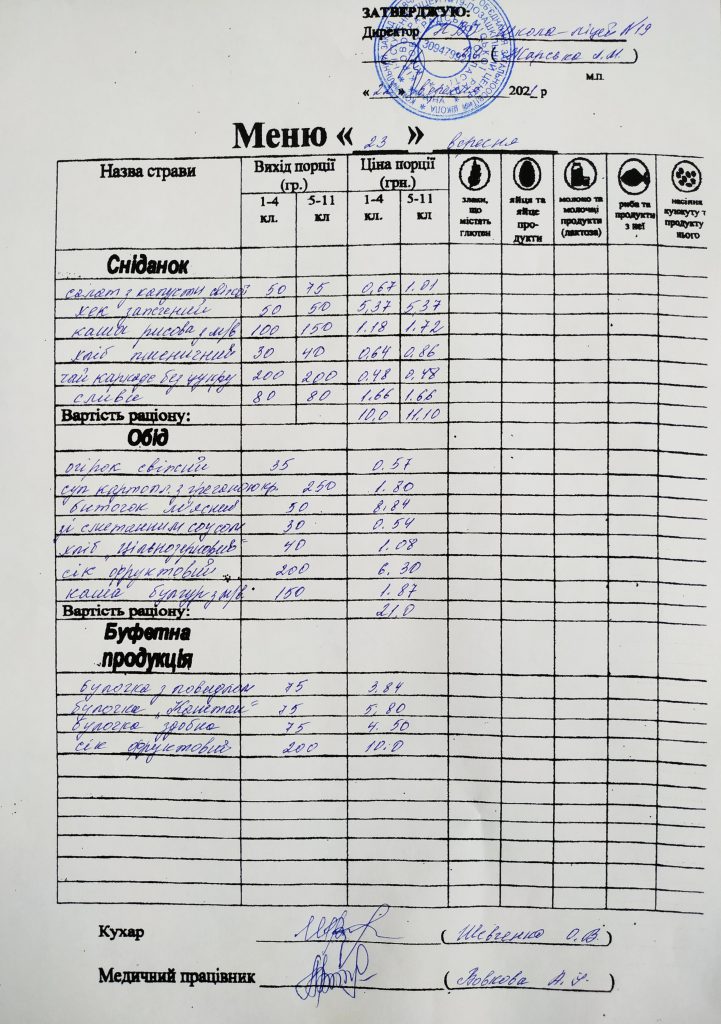 ЗАТВЕРДЖУЮ:
Директор НВО Школа-ліцей №19
(Жарська Л.М.)
м.п.
«22» вересня 2021 р
Меню «23» вересня
Назва страви Вихід порції (гр.) Ціна порції (грн.)
1-4 кл. 5-11 кл 1-4 кл. 5-11 кл
злаки, що містять глютен
яйця та яйце про-дукти
молоко та молочні продукти (лактоза)
риба та продукти з неї
насіння кунжуту т продукту нього
Сніданок
салат з капусти свіжої 50 75 0,67 1.01
хек запечений 50 50 5,37 5,37
каша рисова з м/в 100 150 1.18 1.72
хліб пшеничний 30 40 0,64 0,86
чай каркаде без цукру 200 200 0,48 0,48
сливи 80 80 1,66 1.66
Вартість раціону: 10,0 11,10
Обід
огірок свіжий 35 0.57
суп картопл. з гречаною кр. 250 1.80
биточок м'ясний 50 8,84
зі сметанним соусом 30 0.54
хліб "Цільнозерновий" 40 1.08
сік фруктовий 200 6.30
каша булгур з м/в. 150 1.87
Вартість раціону: 21,0
Буфетна
продукція
булочка з повидлом 75 3.84
булочка "Каштан" 75 5,80
булочка здобна 75 4.50
сік фруктовий 200 10.0
Кухар (Шевченко О.В.)
Медичний працівник (Вовкова А.)